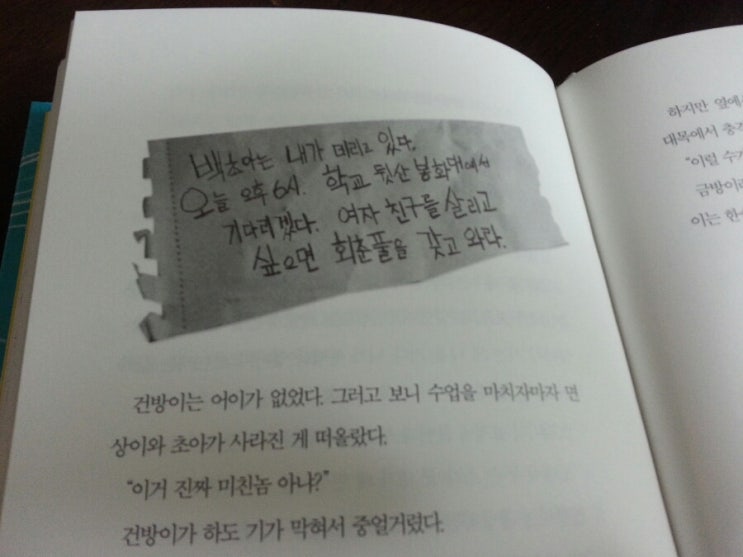 백초아는 내가 데리고 있다.
오늘 오후 6시. 학교 뒷산 봉화대에서
기다리겠다. 여자 친구를 살리고
싶으면 회춘풀을 갖고 와라.
건방이는 어이가 없었다. 그러고 보니 수업을 마치자마자 면
상이와 초아가 사라진 게 떠올랐다.
"이거 진짜 미친놈 아냐?"
건방이가 하도 기가 막혀서 중얼거렸다.
하지만
대목에서
"이럴
이는